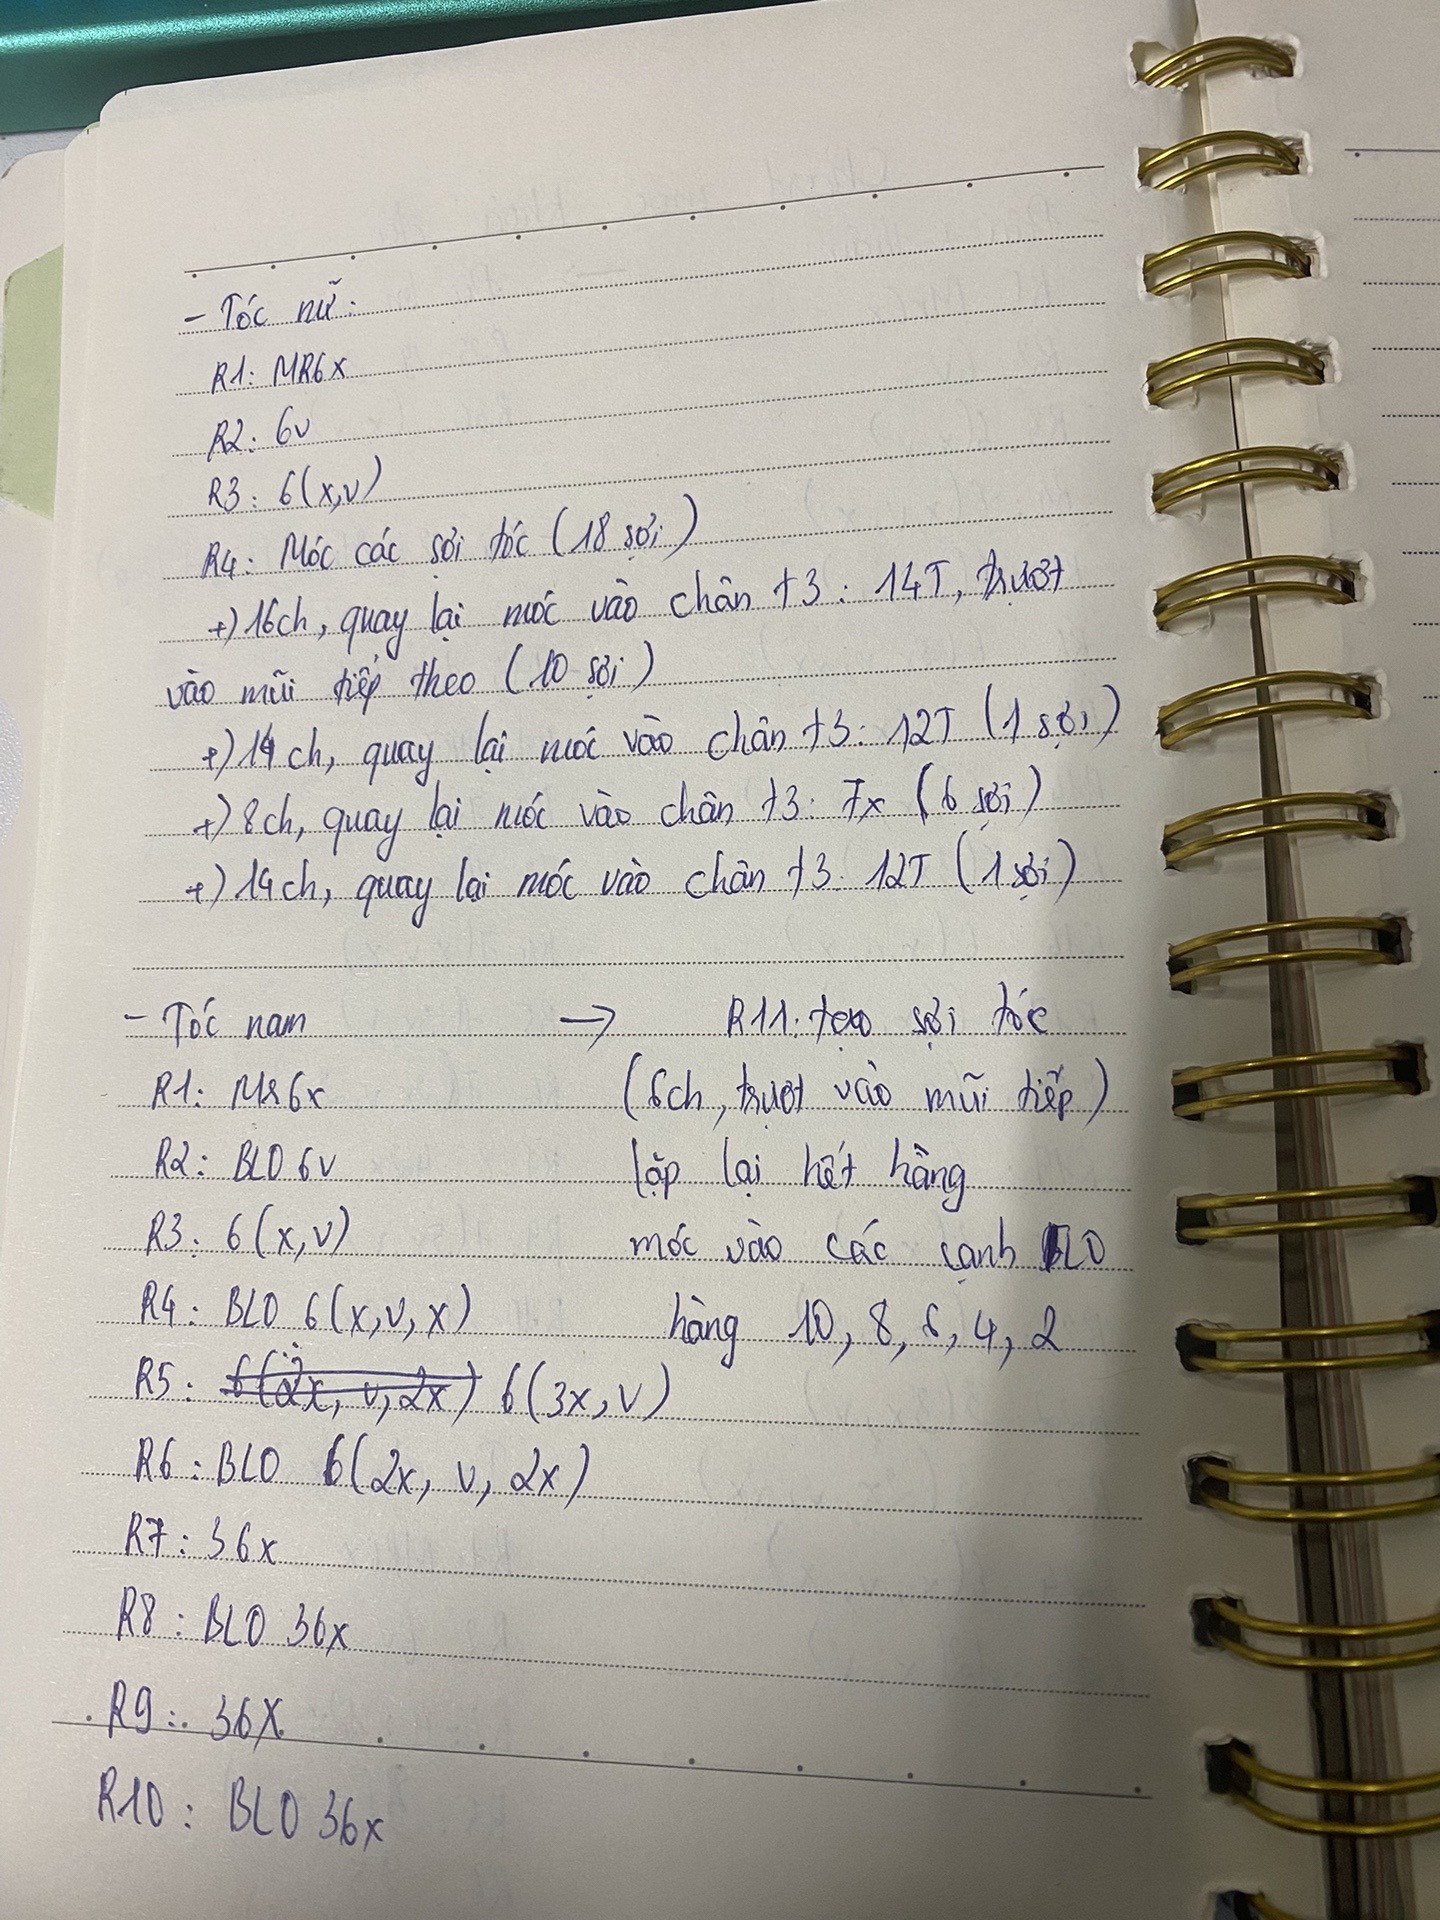 - Tóc nữ:
R1: MR6x
R2: 6v
R3: 6(x,v)
R4: Móc các sợi tóc (18 sợi)
+) 16ch, quay lại móc vào chân t3: 14T, trượt
vào mũi tiếp theo (10 sợi)
+) 14ch, quay lại móc vào chân t3: 12T (1 sợi)
+) 8ch, quay lại móc vào chân t3: 7x (6 sợi)
+) 14ch, quay lại móc vào chân t3: 12T (1 sợi)
- Tóc nam
R1: MR6x
R2: BLO 6v
R3: 6(x,v)
R4: BLO 6(x,v,x)
R5: 6(2x, v, 2x) 6(3x, v)
R6: BLO 6(2x, v, 2x)
R7: 36x
R8: BLO 36x
R9: 36x
R10: BLO 36x
→ R11: tạo sợi tóc
(6ch, trượt vào mũi tiếp)
lặp lại hết hàng
móc vào các cạnh BLO
hàng 10, 8, 6, 4, 2